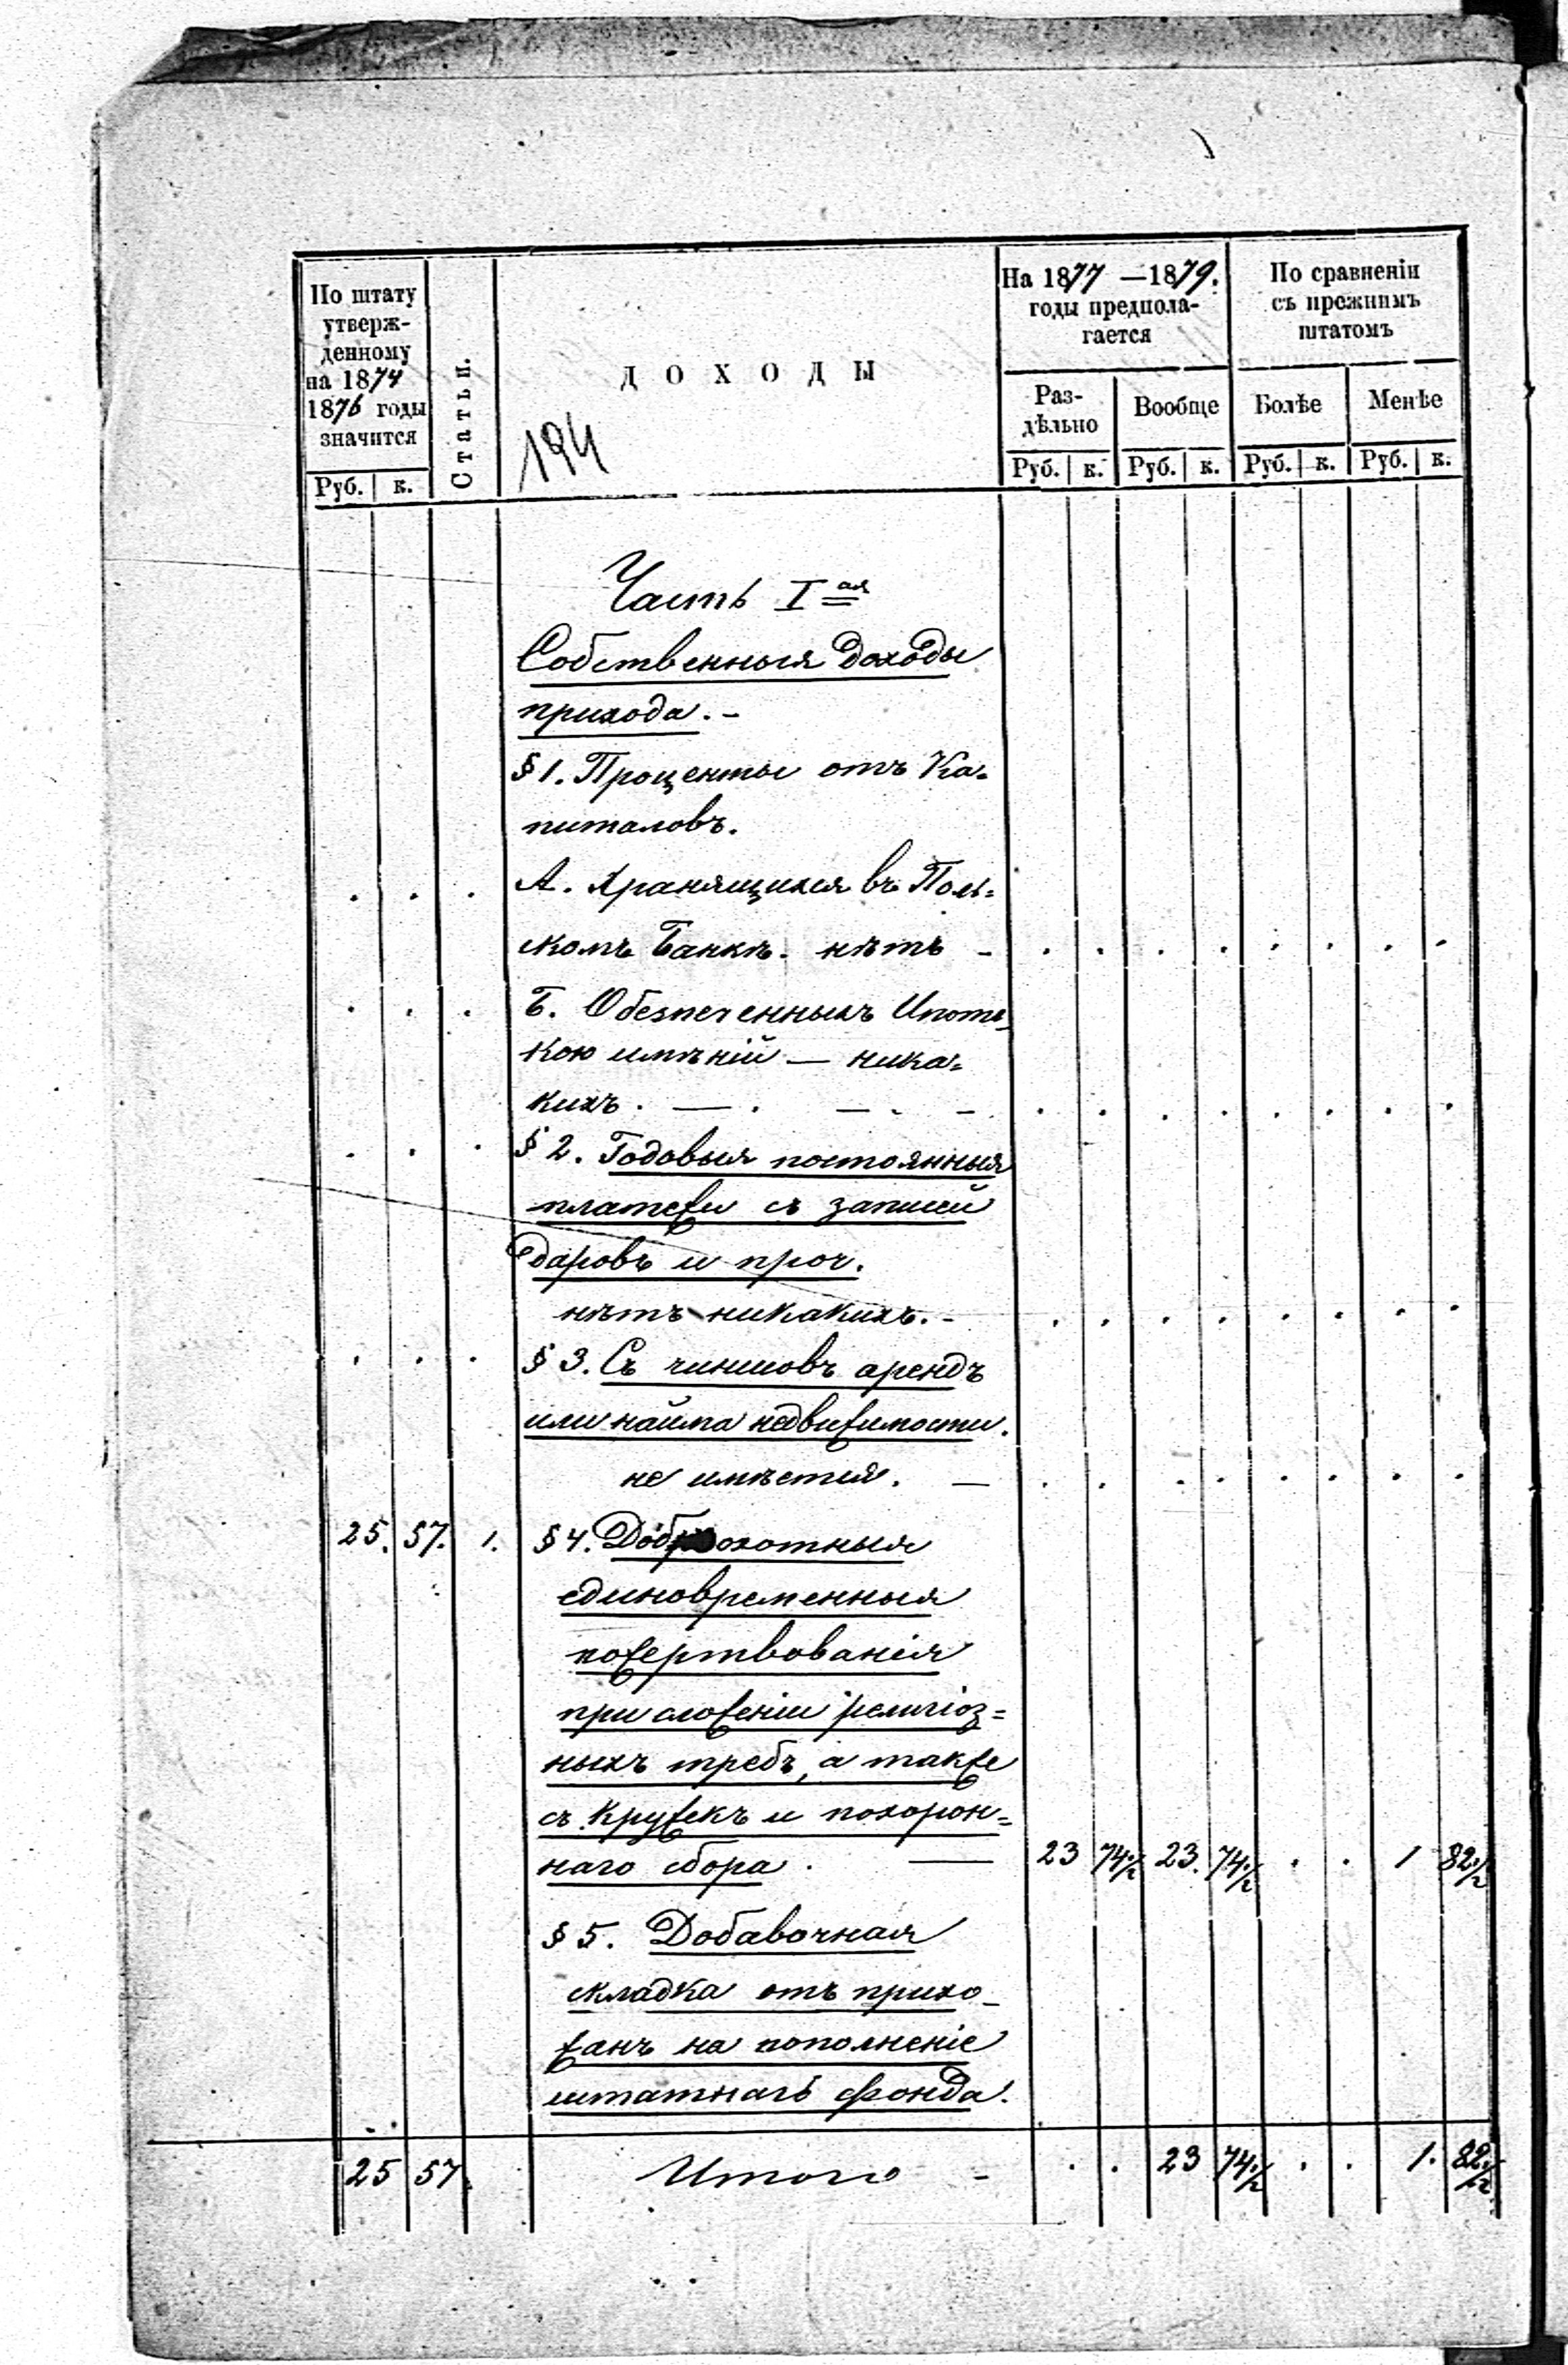 По штату
утверж-
денному
на 1874
1876 годы
значится
Руб. к.
Статьи.
ДОХОДЫ
194
На 1877 —1879.
годы предпола-
гается
Раз-
дѣльно
Руб. к.
Вообще
Руб. к.
По сравненіи
съ прежнимъ
штатомъ
Болѣе
Руб. к.
Менѣе
Руб. к.
Часть I ая
Собственныя доходы
прихода. -
§ 1. Проценты отъ Ка=
питаловъ.
А. Хранящихся въ Поль=
скомъ Банкѣ. нѣтъ -
Б. Обезпеченныхъ Ипоте=
кою имѣній — ника=
кихъ. — . — . -
§ 2. Годовыя постоянныя
платежи съ записей
даровъ и проч.
нѣтъ никакихъ. -
§ 3. Съ чиншовъ арендъ
или найма недвижимости.
не имѣется. —
25. 57. 1. § 4. Доброхотныя
единовременныя
пожертвованія
при служеніи религіоз=
ныхъ требъ, а также
съ кружекъ и похорон=
наго сбора. — 23 74½ 23. 74½ . . 1 82½
§ 5. Добавочная
складка отъ прихо-
жанъ на пополненіе
штатнаго фонда.
25 57. Итого - . . 23 74½ . . 1. 82½